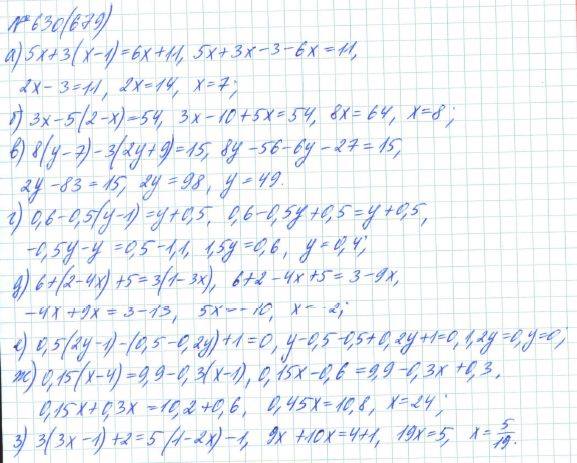 № 630(679)
а) 5x+3(x-1)=6x+11, 5x+3x-3-6x=11,
2x-3=11, 2x=14, x=7;
б) 3x-5(2-x)=54, 3x-10+5x=54, 8x=64, x=8;
в) 8(y-7)-3(2y+9)=15, 8y-56-6y-27=15,
2y-83=15, 2y=98, y=49.
г) 0,6-0,5(y-1)=y+0,5, 0,6-0,5y+0,5=y+0,5,
-0,5y-y=0,5-1,1, 1,5y=0,6, y=0,4;
д) 6+(2-4x)+5=3(1-3x), 6+2-4x+5=3-9x,
-4x+9x=3-13, 5x=-10, x=-2;
е) 0,5(2y-1)-(0,5-0,2y)+1=0, y-0,5-0,5+0,2y+1=0, 1,2y=0, y=0;
ж) 0,15(x-4)=9,9-0,3(x-1), 0,15x-0,6=9,9-0,3x+0,3,
0,15x+0,3x=10,2+0,6, 0,45x=10,8, x=24;
з) 3(3x-1)+2=5(1-2x)-1, 9x+10x=4+1, 19x=5, x=5/19.